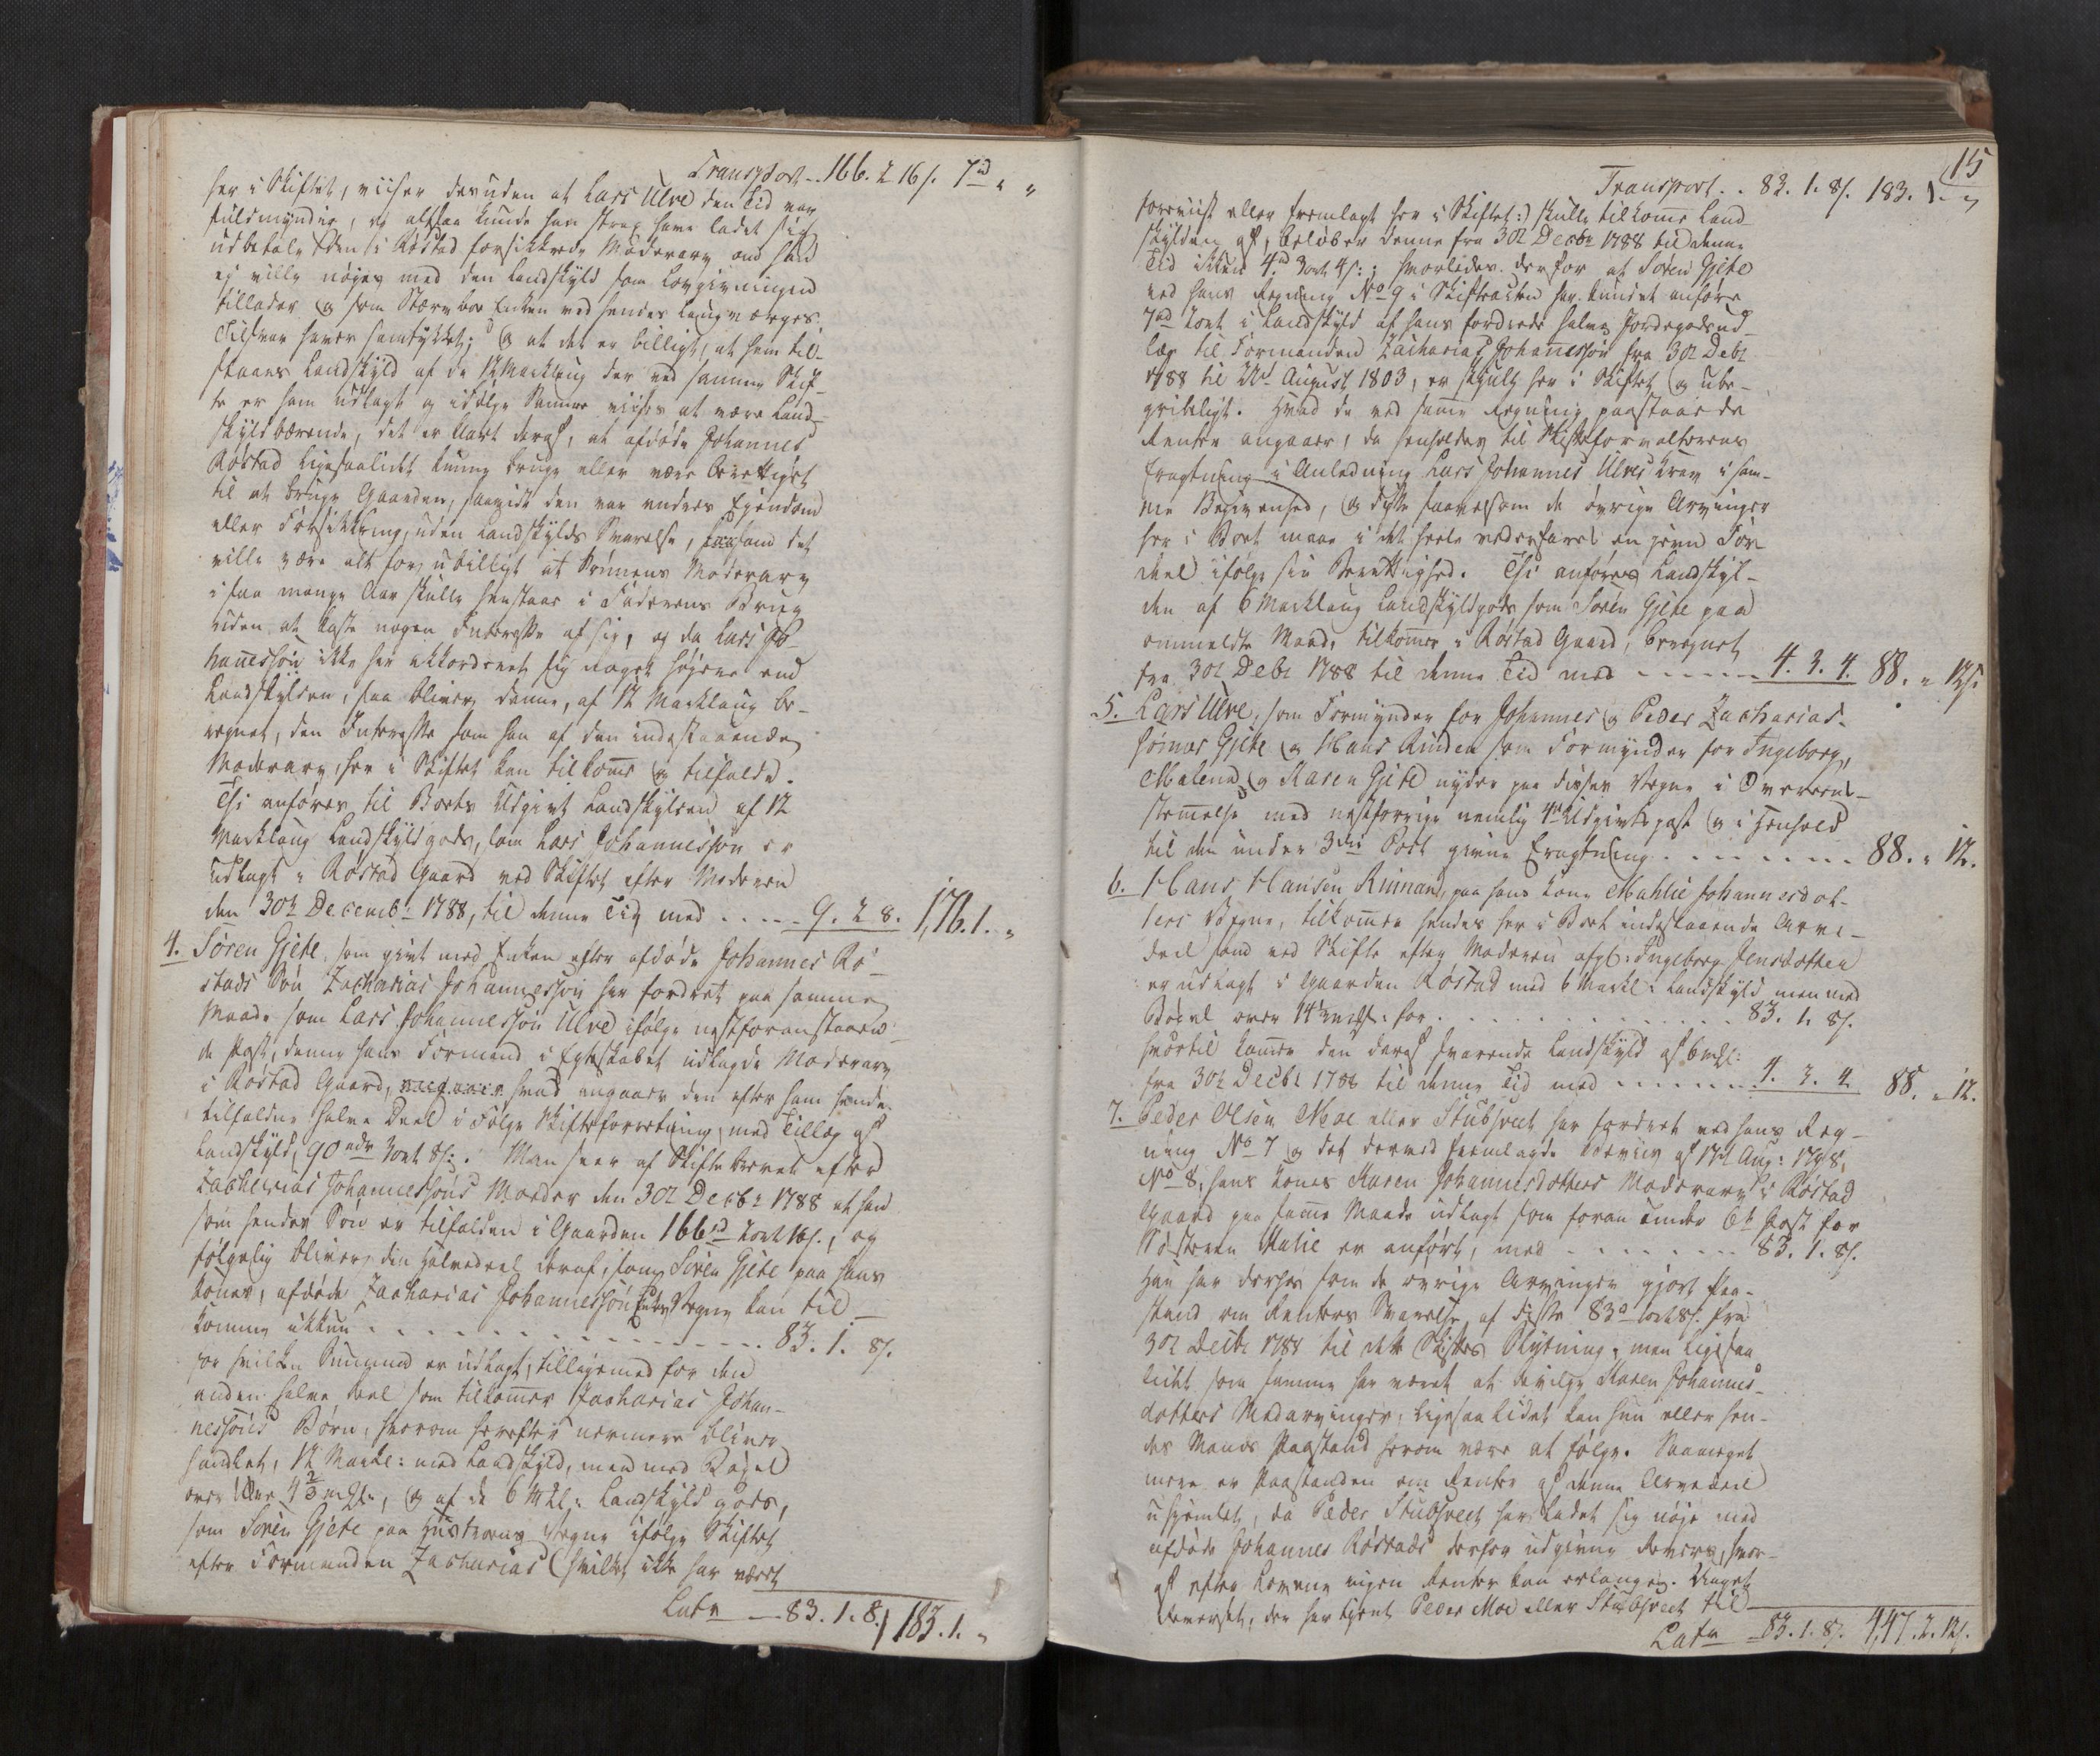 Transport - - 166. 2 16/. 7 rd „ „
her i Skiftet, viiser desuden at Lars Ulve den Tid var
fuldmyndig, og altsaa kunde han strax have ladet sig
udbetale den i Røstad forsikkrede Mødrearv om han
ej ville nøyes med den Landskyld som Lovgivningen
tillader og som Stervboe Enken ved hendes Laugværges
Tilsvar haver samtykket; og at det er billigt, at ham til-
staaes Landskyld af de 12 Marklaug der ved samme Skif-
te er ham udlagt og ifølge Samme viises at være Land-
skyldbærende, det er klart deraf, at afdøde Johannes
Røstad ligesaalidet kunne bruge eller være berettiget
til at bruge Gaarden, saavidt den var andres Ejendom
eller Forsikkring, uden Landskylds Svarelse, saasom det
ville være alt for ubilligt at Sønnens Moderarv
i saa mange Aar skulle henstaae i Faderens Brug
uden at kaste nogen Interesse af sig, og da Lars Jo-
hannessøn ikke har akkorderet sig noget høyere end
Landskylden, saa bliver denne, af 12 Marklaug be-
regnet, den Interesse som han af den indestaaende
Moderarv, her i Skiftet kan tilkomme og tilfalde.
Thi anføres til Boets Udgivt Landskylden af 12
Marklaug Landskyldgods, som Lars Johannessøn er
udlagt i Røstad Gaard ved Skiftet efter Moderen
den 30te Decembr 1788, til denne Tid med - - - - 9. 2 8. 176. 1. „
4. Søren Gjete, som givt med Enken efter afdøde Johannes Rø-
stads Søn Zacharias Johannessøn har fordret paa samme
Maade som Lars Johannessøn Ulve ifølge nestforanstaaen-
de Post, denne hans Formand i Egteskabet udlagde Moderarv
i Røstad Gaard, hvad angaaer den efter ham hende
tilfaldne halve Deel i følge Skifteforretning, med Tillæg af
Landskyld, 90 rdr 3 ort 8/: . Man seer af Skiftebrevet efter
Zacharias Johannessøns Moeder den 30te Decbr 1788 at han
som hendes Søn er tilfalden i Gaarden 166 rd 2 ort 16/., og
følgelig bliver den halvedeel deraf, som Søren Gjete paa hans
Kones, afdøde Zacharias Johannessøns Enkes Vegne kan til-
komme ikkun - - - - - - - - 83. 1. 8/.
for hvilken Summa er udlagt, tilligemed for den
anden halve Deel som tilkommer Zacharias Johan-
nessøns Børn, hvorom herefter nærmere bliver
handlet, 12 Markl: med Landskyld, men med Bøxel
over 4 2/3 mkl., og af de 6 Mkl: Landskyld gods,
som Søren Gjete paa Hustruens Vegne ifølge Skiftet
efter Formanden Zacharias (hvilket ikke har været
Lat: - 83. 1. 8. 183. 1. „
15
Transport . . 83. 1. 8/. 183. 1. „
foreviist eller fremlagt her i Skiftet:) skulle tilkomme Land-
skylden af, beløber denne fra 30te Decbr 1788 til denne
Tid ikkun 4 rd 3 ort 4/:; hvorledes derfor at Søren Gjete
ved hans Regning No 9 i Skifteacten har kundet anføre
7 rd 1 ort i Landskyld af hans fordrede halve Jordegodsud-
læg til Formanden Zacharias Johannessøn fra 30te Debr
1788 til August 1803, er skjult her i Skiftet og ube-
gribeligt. Hvad de ved samme Regning paastaaede
Renter angaaer, da henholdes til Skifteforvalterens
Eragtning i Anledning Lars Johannes Ulves Krav i sam-
me Begivenhed, og disse saavelsom de øvrige Arvinger
her i Boet maae i det heele vederfares en jevn For-
deel ifølge sin Berettighed. Thi anføres Landskyl-
den af 6 Marklaug Landskyldgods som Søren Gjete paa
ommeldte Maade tilkommer i Røstad Gaard, beregnet
fra 30te Debr 1788 til denne Tid med - - - - - 4. 3. 4. 88. „ 12/.
5. Lars Ulve, som Formynder for Johannes og Peder Zacharias-
sønner Gjete og Hans Rinden som Formynder for Ingeborg,
Malena og Karen Gjete nyder paa disses Vegne i Overeens-
stemmelse med nestforrige nemlig 4de Udgivtspost og i Henhold
til den under 3die Post givne Eragtning . - - - - - 88. „ 12.
6. Hans Hansen Rinnan, paa hans Kone Mahlie Johannesdot-
ters Vegne, tilkommer hendes her i Boet indestaaende Arve-
deel som ved Skifte efter Moderen afg: Ingeborg Jensdatter
er udlagt i Gaarden Røstad med 6 Markl: Landskyld men med
Bøxel over 14 mkl: for . . . . . . . . 83. 1. 8/.
hvortil kommer den deraf svarende Landskyld af 6 mkl:
fra 30te Decbr 1788 til denne Tid med - - - - - - 4. 3. 4. 88. „ 12.
7. Peder Olsen Moe eller Stubsveet har fordret ved hans Reg-
ning No 7 og det derved fremlagde Revers af 17de Aug: 1798,
No 8, hans Kones Karen Johannesdotters Moderarv i Røstad
Gaard paa samme Maade udlagt som foran under 6te Post for
Søsteren Malie er anført, med - - - - - - 83. 1. 8/.
Han har derhos som de øvrige Arvinger gjort Paa-
stand om Renters Svarelse af disse 83 rd 1 ort 8/. fra
30te Decbr 1788 til dette Skiftes Slutning, men ligesaa
lidet som samme har været at bevilge Karen Johannes-
dotters Medarvinger, ligesaa lidet kan hun eller hen-
des Mands Paastand herom være at følge. Saameget
mere er Paastanden om Renter af denne Arvedeel
uhjemlet, da Peder Stubsveet har ladet sig nøje med
afdøde Johannes Røstads derfor udgivne Revers, hvor-
af efter Lovene ingen Renter kan erlanges.
Reverset, der har tjent Peder Moe eller Stubsveet til
Lat: - 83. 1. 8/. 447. 2. 12/.